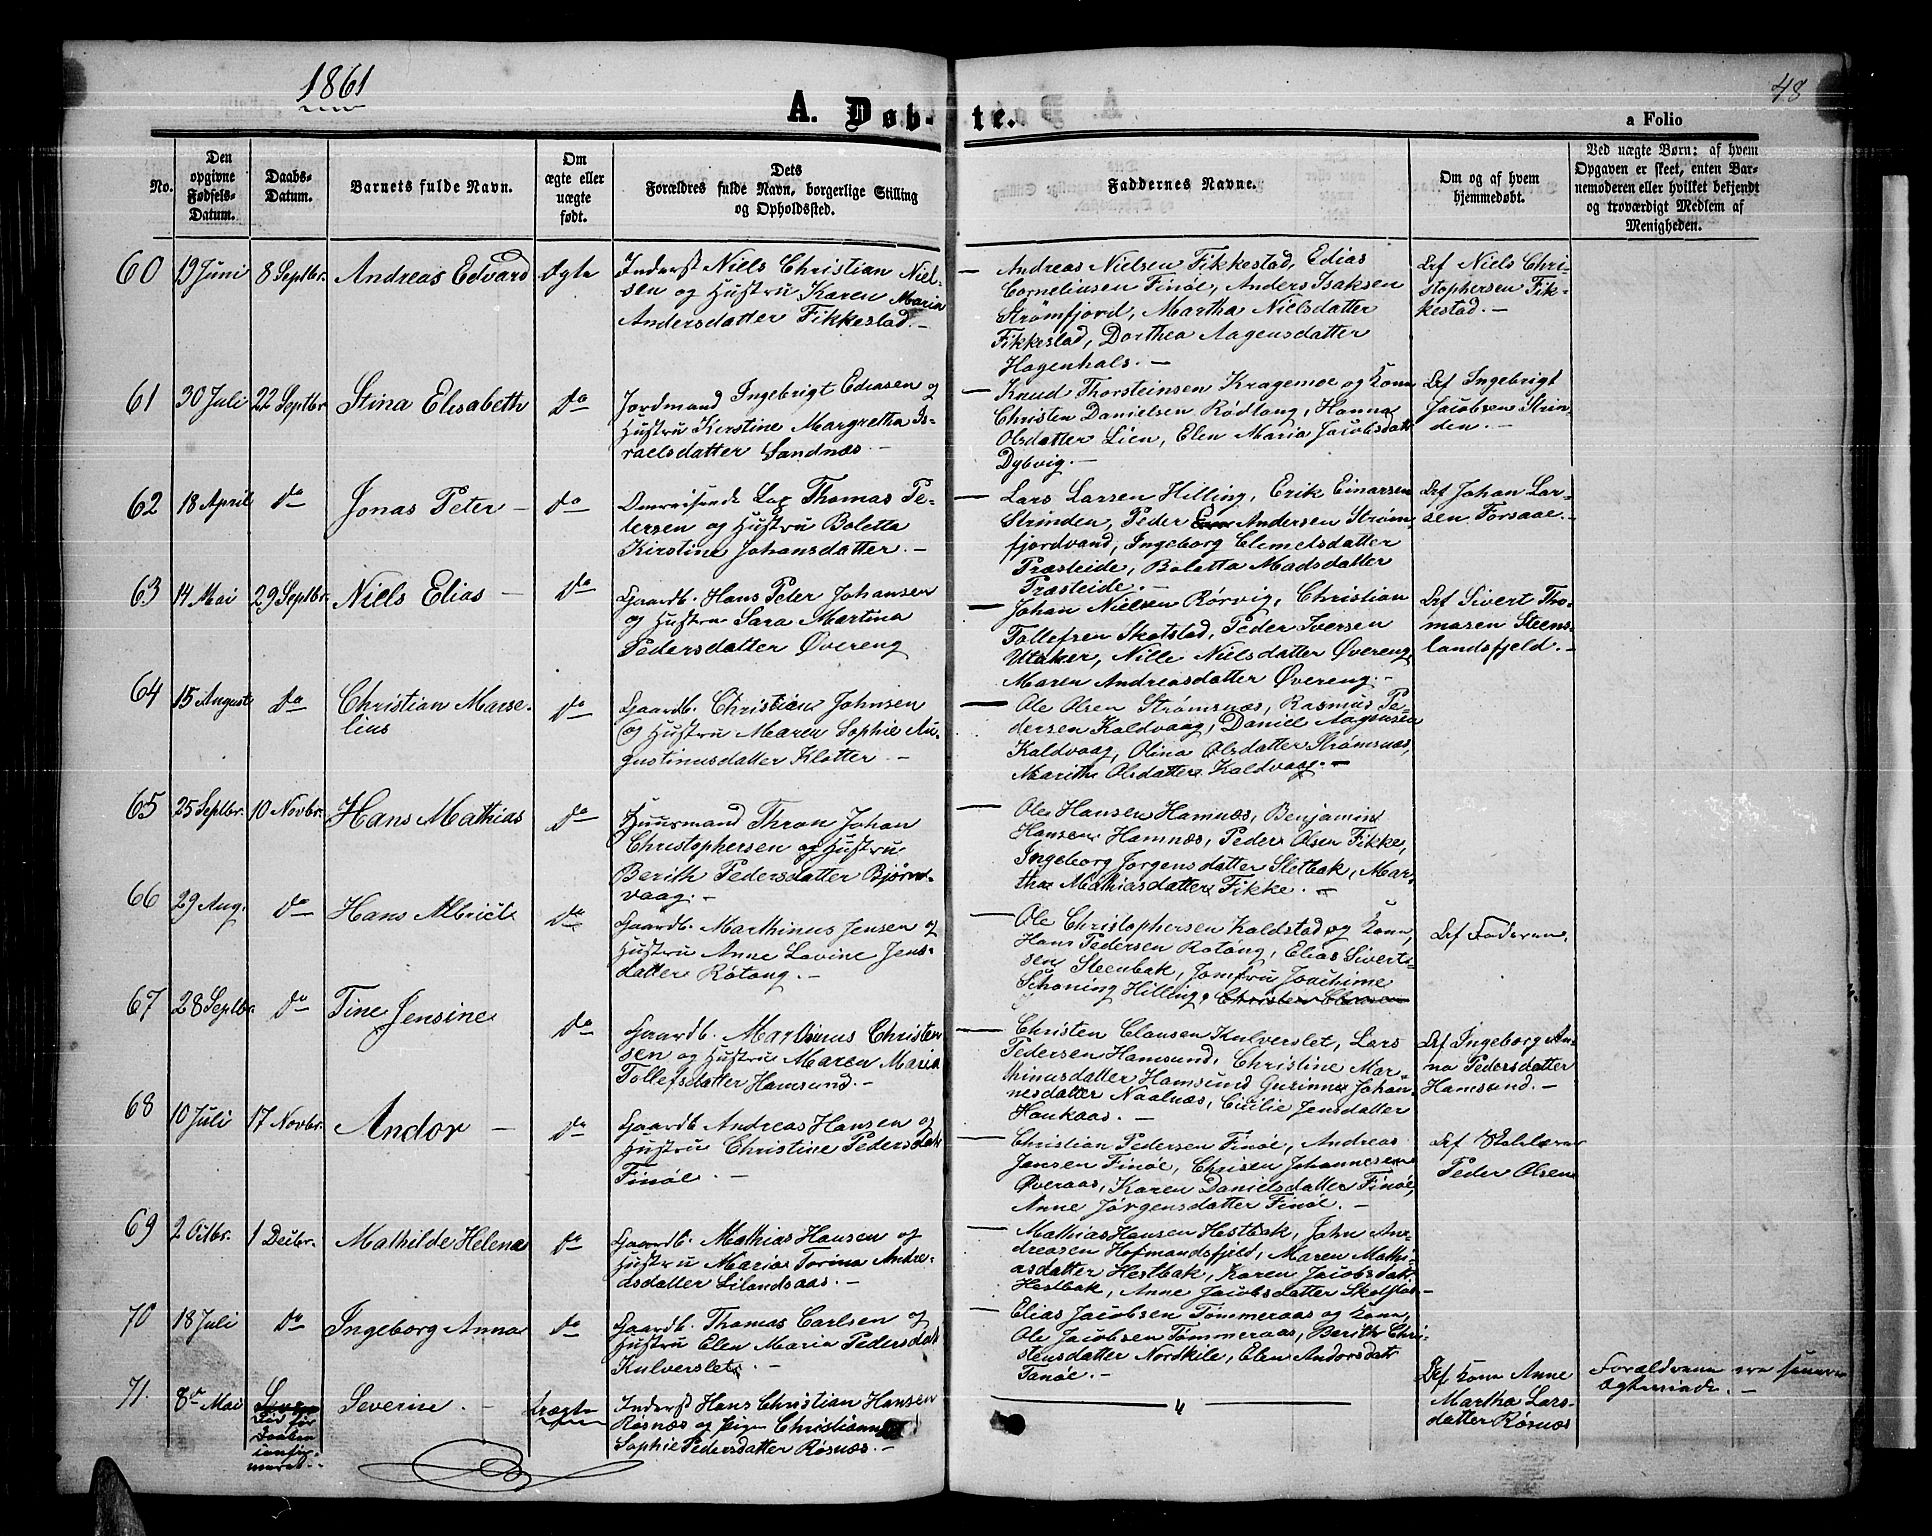 1861
48
A. Døb-te.
a Folio
No.
Den opgivne Fødsels-Datum.
Daabs-Datum.
Barnets fulde Navn.
Om ægte eller uægte født.
Dets Forældres fulde Navn, borgerlige Stilling og Opholdssted.
Faddernes Navne.
Om og af hvem hjemmedøbt.
Ved uægte Børn; af hvem Opgaven er skeet, enten Barnemoderen eller hvilket bekjendt og troværdigt Medlem af Menigheden.
60 19 Juni 8 Septbr. Andreas Edvard Ægte
Inderst Niels Christian Niel-
sen og Hustru Karen Maria
Andersdatter Fikkestad. -
- Andreas Nielsen Fikkestad, Edias
Corneliusen Finöe, Anders Isaksen
Strømfjord, Martha Nielsdatter
Fikkestad, Dorthea Aagensdatter
Hogenhals. -
Def Niels Chri-
stophersen Fik-
kestad. -
61 30 Juli 22 Septbr Stina Elisabeth do
Jordmand Ingebrigt Ediasen og
Hustru Kirstine Margretha Is-
raelsdatter Sandnæs -
- Knud Thorsteinsen Kragemoe og Kone
Christen Danielsen Rödtang, Hanna
Olsdatter Lien, Elen Maria Jacobsdatt
Dybvig. -
Def Ingebrigt
Jacobsen Strin-
den. -
62 18 April do Jonas Peter - do
Omreisende Lap Thomas Pe-
tersen og Hustru Boletta
Kirstine Johansdatter. -
- Lars Larsen Hilling, Erik Einarsen
Strinden, Peder Andersen Strøm-
fjordvand, Ingeborg Clemetsdatter
Præsteide, Boletta Madsdatter
Præsteide. -
Def Johan Lar-
sen Forsaae. -
63 14 Mai 29 Septbr. Niels Elias - do
Gaardb. Hans Peter Johansen
og Hustru Sara Martina
Pedersdatter Øvereng
- Johan Nielsen Rørvig, Christian
Tollefsen Skotstad, Peder Iversen
Utaker, Nille Nielsdatter Øvereng,
Maren Andreasdatter Øvereng. -
Def Sivert Tho-
masen Steens-
landsfjeld. -
64 15 August do Christian Marse-
lius do
Gaardb. Christian Johnsen
og Hustru Maren Sophie Au-
gustinusdatter Klotter. -
- Ole Olsen Strømsnæs, Rasmus Pe-
dersen Kaldvaag, Daniel Aagensen
Kaldvaag, Olina Olsdatter Strømsnæs,
Marith Olsdatter Kaldvaag. -
65 25 Septbr. 10 Novbr. Hans Mathias do
Huusmand Thron Johan
Christophersen og Hustru
Berith Pedersdatter Bjørn-
vaag. -
- Ole Hansen Hamnæs, Benjamin
Hansen Hamnæs, Peder Olsen Fikke,
Ingeborg Jørgensdatter Sletbak, Mar-
tha Mathiasdatter Fikke. -
66 29 Aug. do Hans Albriel do
Gaardb. Marthinus Jensen og
Hustru Anne Lovine Jens-
datter Røtang. -
- Ole Christophersen Kaldstad og Kone,
Hans Pedersen Rotang, Elias Sivert-
sen Steenbak, Jomfru Joachime
Schöning Hilling, Christen Clausen
Def Faderen.
67 28 Septbr do Tine Jensine do
Gaardb. Marthinus Christen
sen og Hustru Maren Maria
Tollefsdatter Hamsund. -
- Christen Clausen Kulverslet, Lars
Pedersen Hamsund, Christine Mar-
thinusdatter Hamsund, Gurinne Johan-
nesdatter Naalnæs, Cicilie Jensdatter
Haukaas. -
Def Ingeborg An-
na Pedersdatter
Hamsund. -
68 10 Juli 17 Novbr. Andor - do
Gaardb Andreas Hansen og
Hustru Christine Pedersdatt
Finöe. -
- Christian Pedersen Finöe, Andreas
Jansen Finöe, Chrisen Johannesen
Øveraas, Karen Danielsdatter Finöe,
Anne Jørgensdatter Finöe. -
Def Skolelærer
Peder Olsen
69 2 Octbr. 1 Decbr. Mathilde Helena do
Gaardb. Mathias Hansen og
Hustru Marias Torina Andre-
asdatter Lilandsaas. -
- Mathias Hansen Hestbak, John An-
dreasen Hofmandsfjeld, Maren Mathi-
asdatter Hestbak, Karen Jacobsdatt.
Hestbak, Anne Jacobsdatter Skotstad -
70 18 Juli do Ingeborg Anna do
Gaardb. Thomas Carlsen og
Hustru Elen Maria Pedersdatt
Kulverslet. -
- Elias Jacobsen Tömmeraas og Kone,
Ole Jacobsen Tømmeraas, Berith Chri-
stensdatter Nordkile, Elen Andorsdatt
Tanöe. -
71. 8de Mai Död før Daaben Severine. - Uægte
Inderst Hans Christian Hansen
Røsnæs og Pigen Christianna
Sophie Pedersdatter Røsnæs. -
- " -
Def Kone Anne
Martha Lars-
datter Røsnæs
Forældrene ere senere
Ægteviede. -